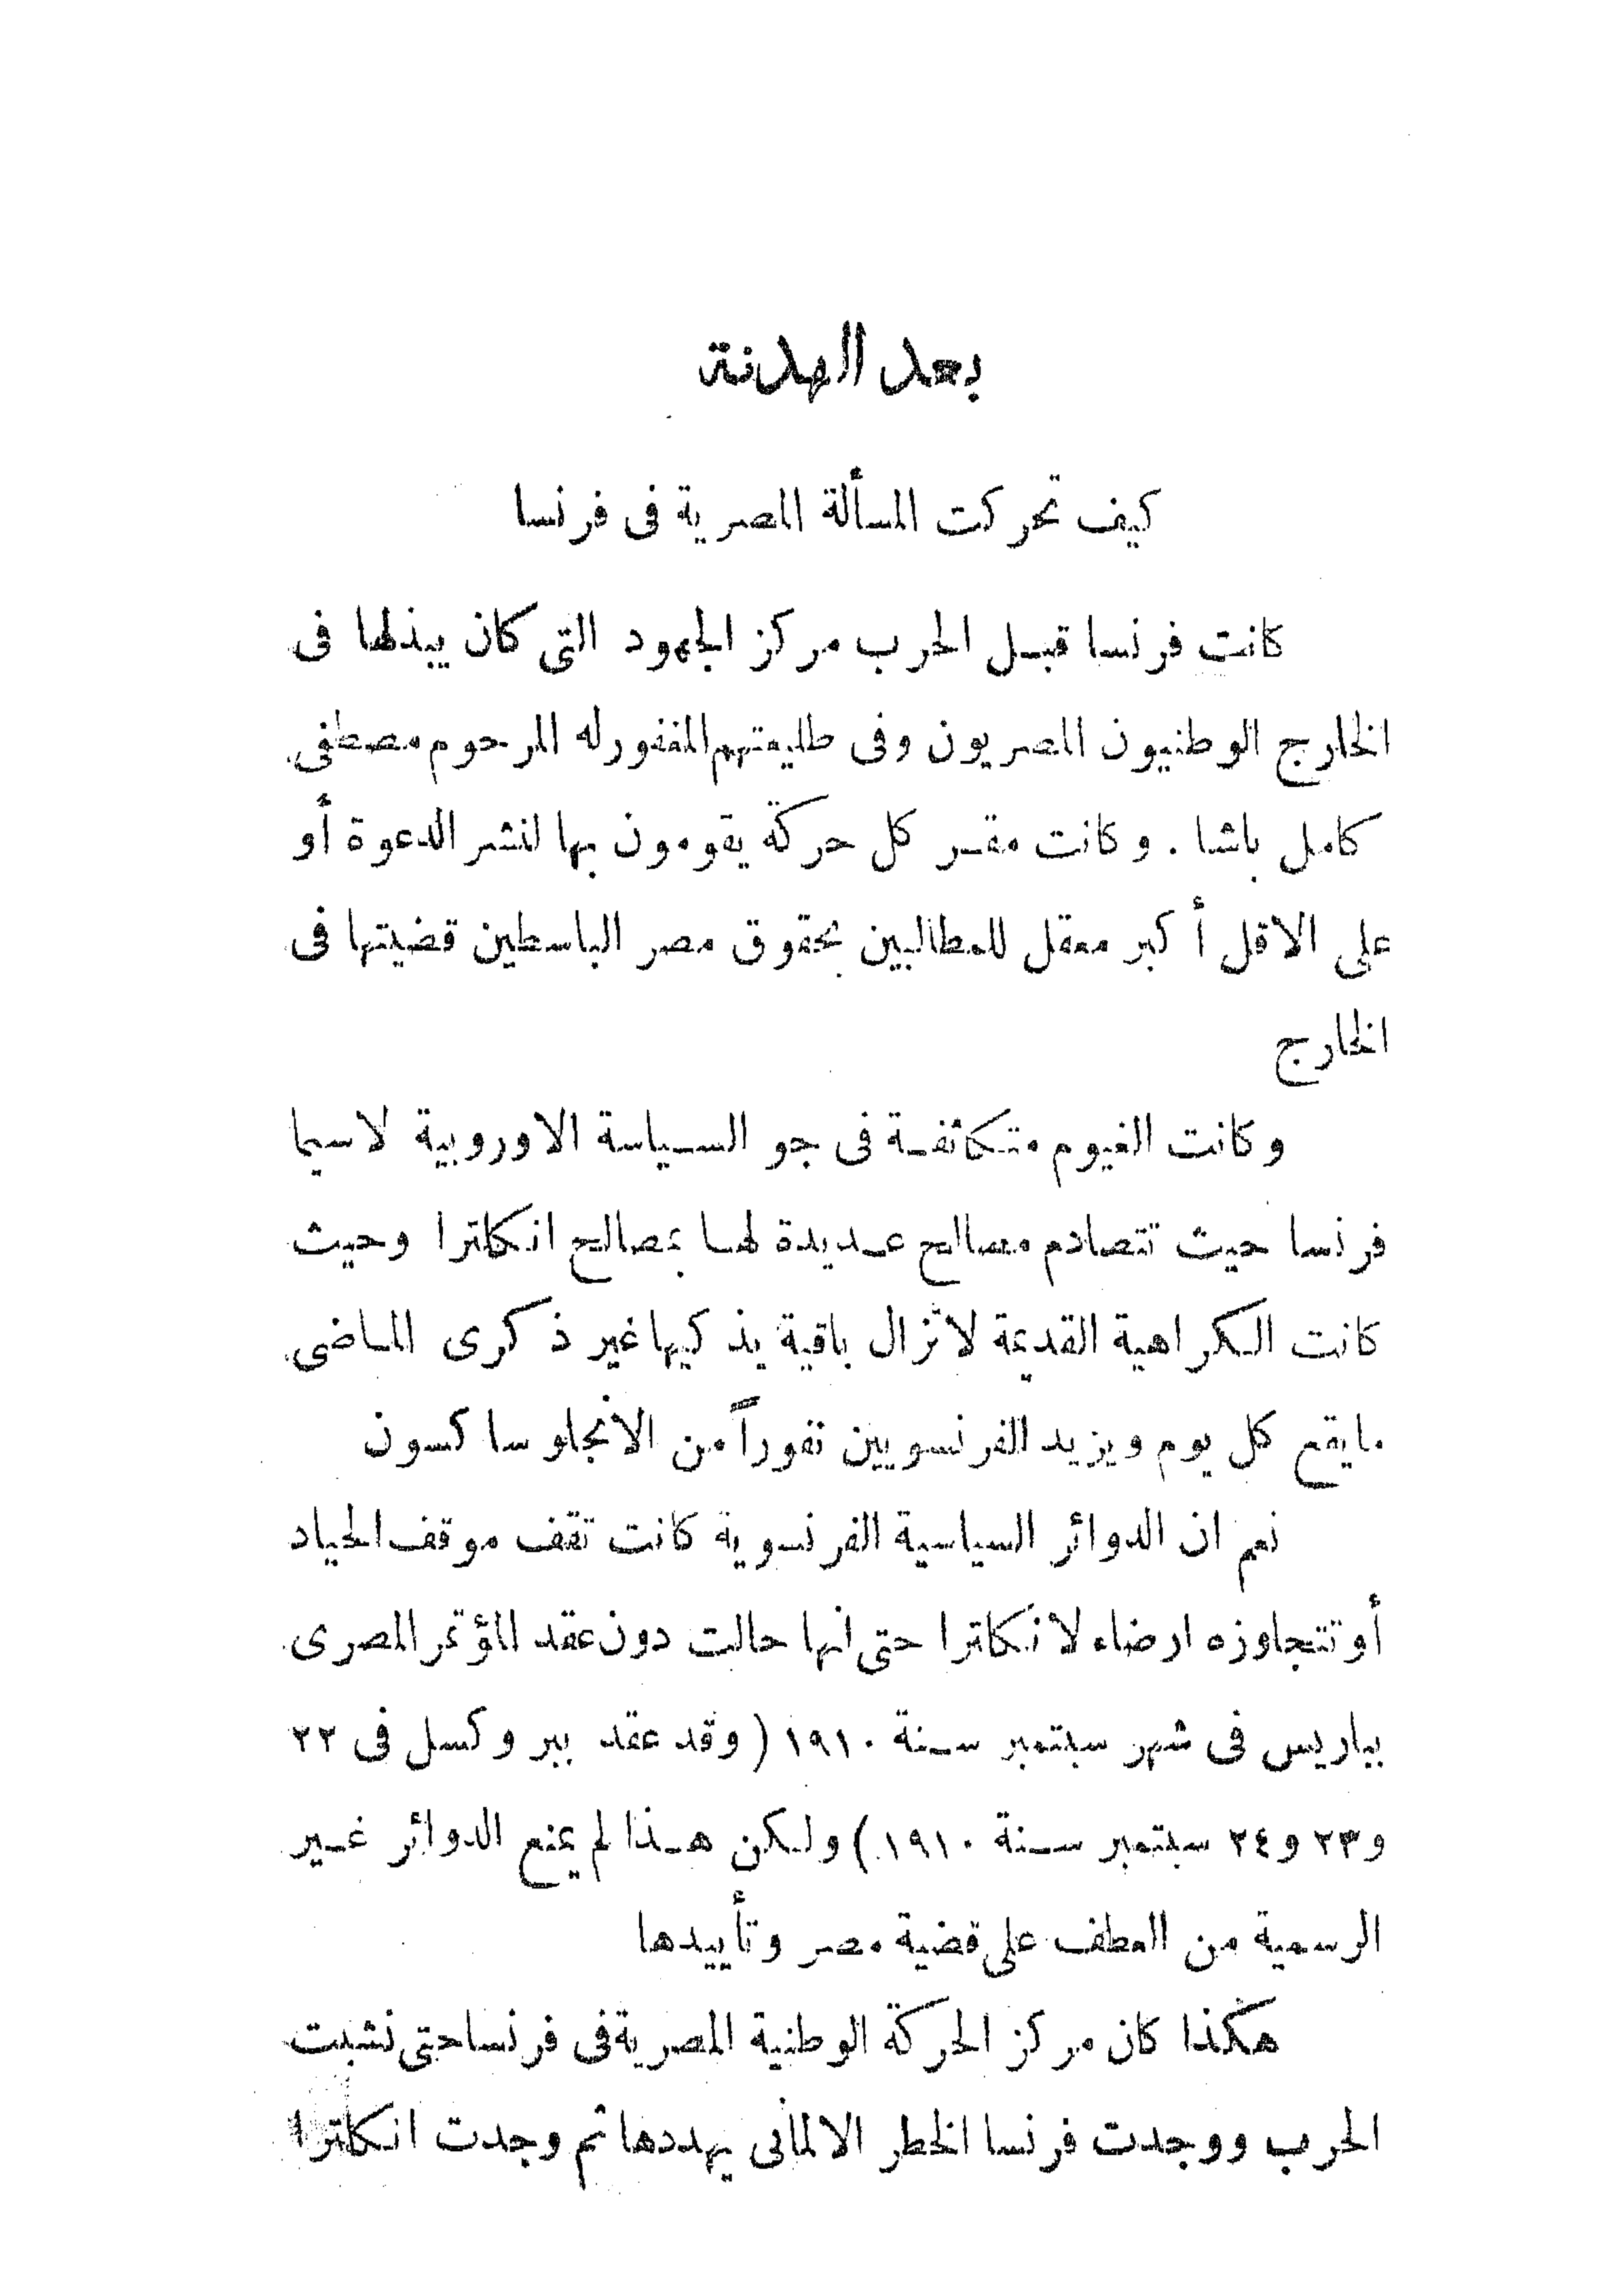 بعد الهدنة
كيف تحركت المسألة المصرية فى فرنسا
كانت فرنسا قبل الحرب مركز الجهود التى كان يبذلها فى
الخارج الوطنيون المصريون وفى طليعتهم المغفورله المرحوم مصطفى
كامل باشا . وكانت مقر كل حركة يقومون بها لنشر الدعوة أو
على الاقل أكبر معقل للمطالبين بحقوق مصر الباسطين قضيتها فى
الخارج
وكانت الغيوم متكاثفة فى جو السياسة الاوروبية لاسيما
فرنسا حيث تتصادم مصالح عديدة لها بمصالح انكلترا وحيث
كانت الكراهية القديمة لا تزال باقية يذكيها غير ذكرى الماضى
ما يقع كل يوم ويزيد الفرنسويين نفوراً من الانجلو ساكسون
نعم ان الدوائر السياسية الفرنسوية كانت تقف موقف الحياد
أو تتجاوزه ارضاء لانكلترا حتى انها حالت دون عقد المؤتمر المصرى
بباريس فى شهر سبتمبر سنة ١٩١٠ ( وقد عقد ببروكسل فى ٢٢
و ٢٣ و ٢٤ سبتمبر سنة ١٩١٠ ) ولكن هذا لم يمنع الدوائر غير
الرسمية من العطف على قضية مصر وتأييدها
هكذا كان مركز الحركة الوطنية المصرية فى فرنسا حتى نشبت
الحرب ووجدت فرنسا الخطر الالمانى يهددها ثم وجدت انكلترا